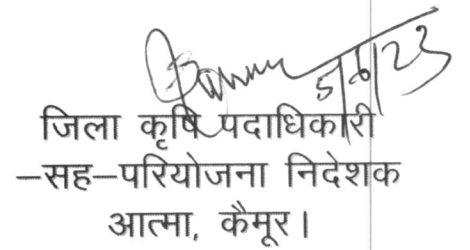 5/6/23
जिला कृषि पदाधिकारी
–सह–परियोजना निदेशक
आत्मा, कैमूर।